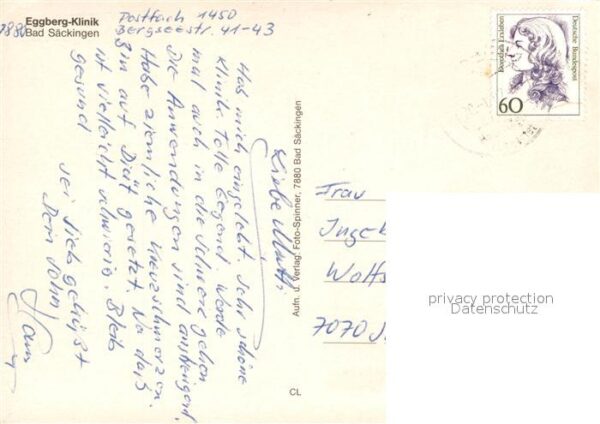 Eggberg-Klinik
Bad Säckingen
7880
Postfach 1450
Bergseestr. 41-43
Liebe Mutti.
Hab mich eingelebt. Sehr schöne
Klinik. Tolle Gegend. Werde
mal auch in die Schweiz gehen
Die Anwendungen sind anstrengend.
Habe ziemliche Kreuzschmerzen.
Bin auf Diät gesetzt. Na das
ist vielleicht schwierig. Bleib
gesund
sei lieb gegrüßt
Dein Sohn
Aufn. u. Verlag: Foto-Spinner, 7880 Bad Säckingen
CL
Dorothea Erxleben
Deutsche Bundespost
60
Frau
Inge
Wolfs
7070 S
privacy protection
Datenschutz